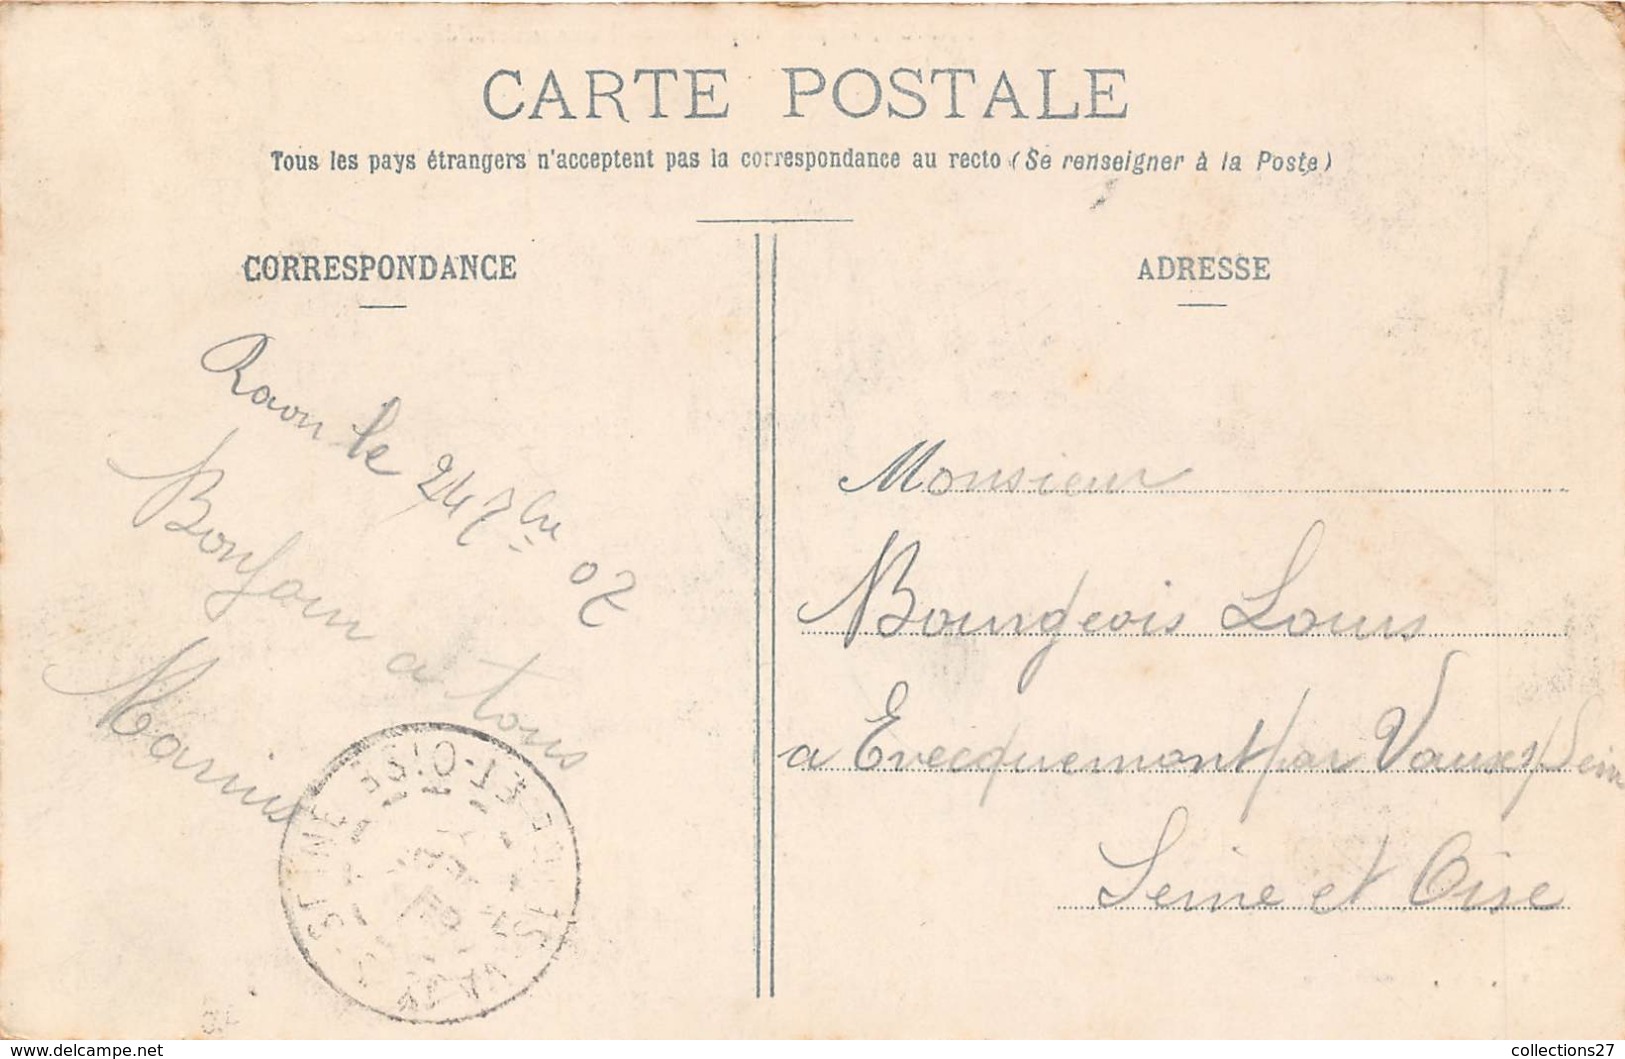 CARTE POSTALE
Tous les pays étrangers n'acceptent pas la correspondance au recto (Se renseigner à la Poste)
CORRESPONDANCE
Raon le 24 7bre 07
Bonjour a tous
Marius
ADRESSE
Monsieur
Bourgeois Louis
a Evecquemont par Vaux s/ Seine
Seine et Oise
SEINE ET-OISE
collections27
www.delcampe.net